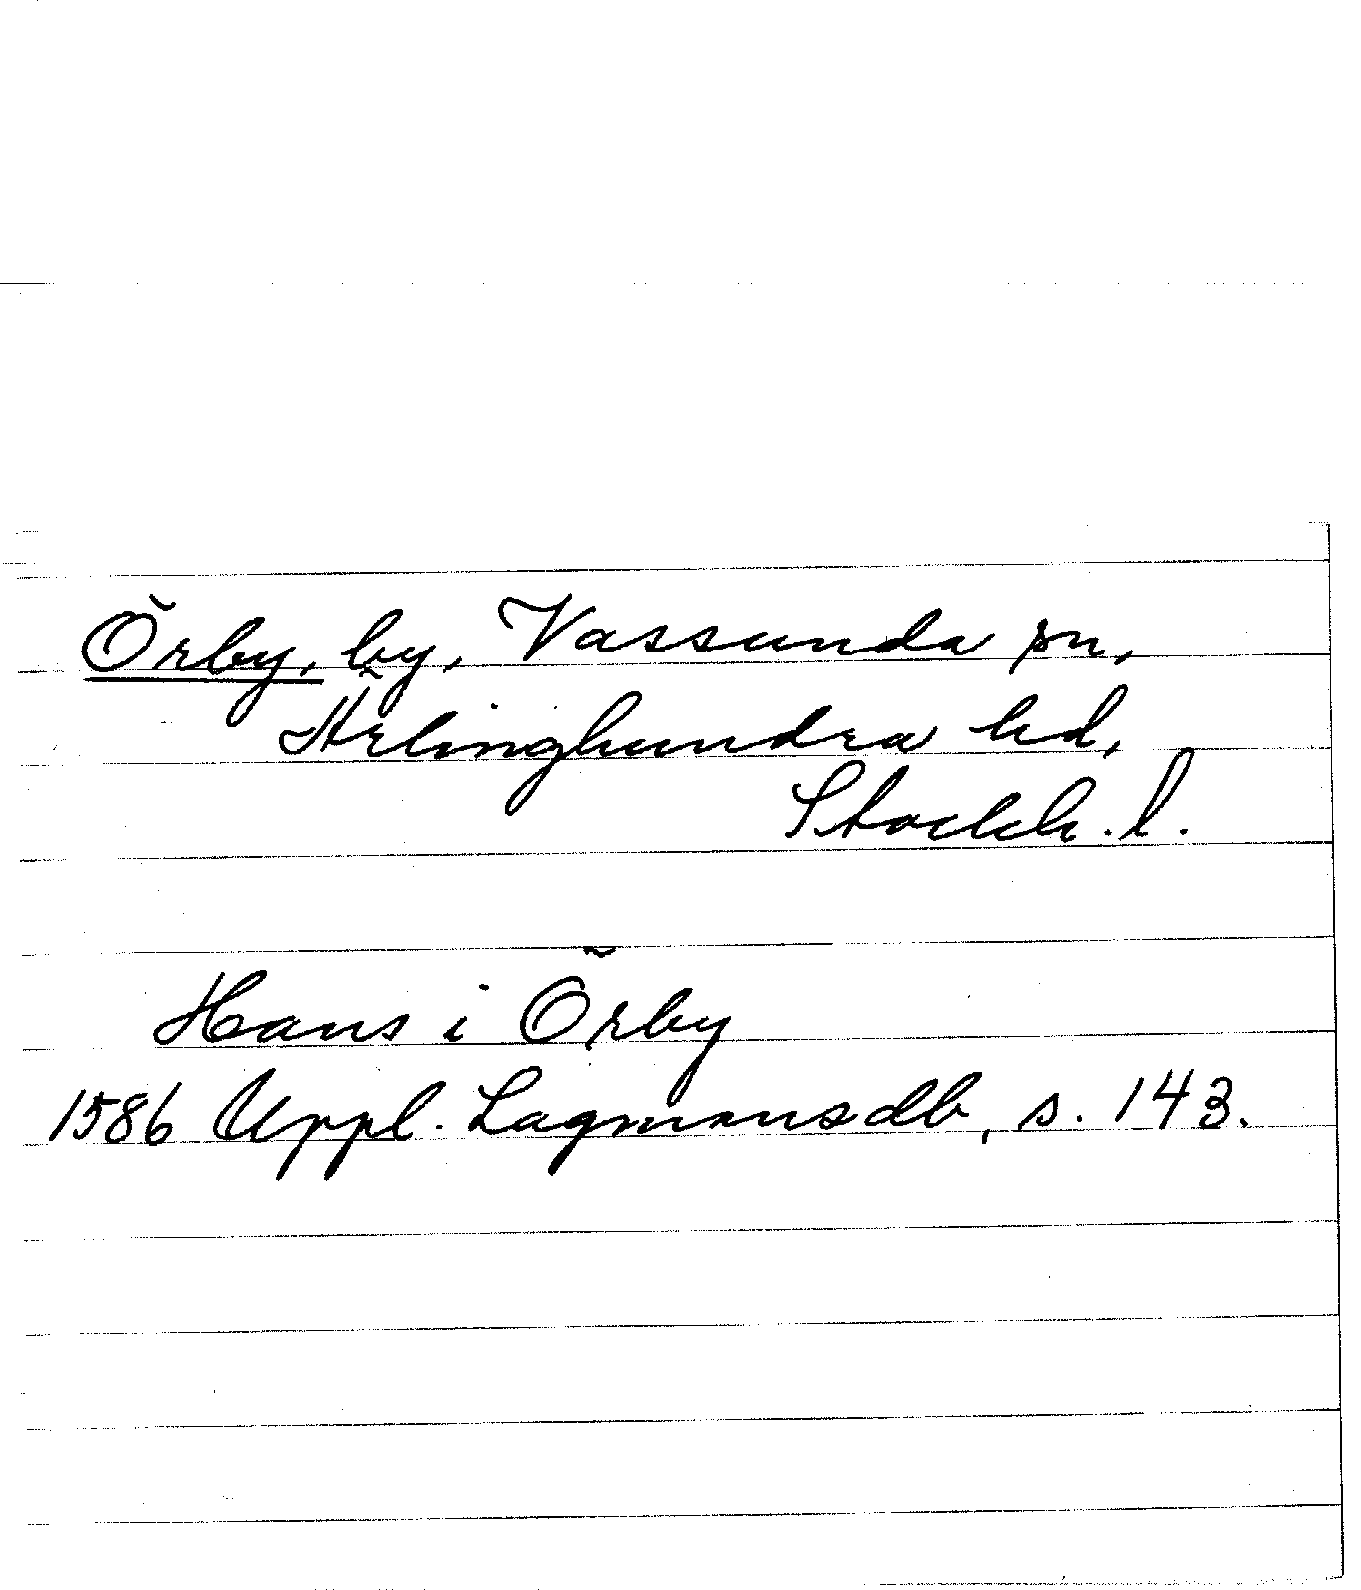 Örby, by, Vassunda sn,
Ärlinghundra hd,
Stockh. l.
Hans i Örby
1586 Uppl. Lagmansdb, s. 143.